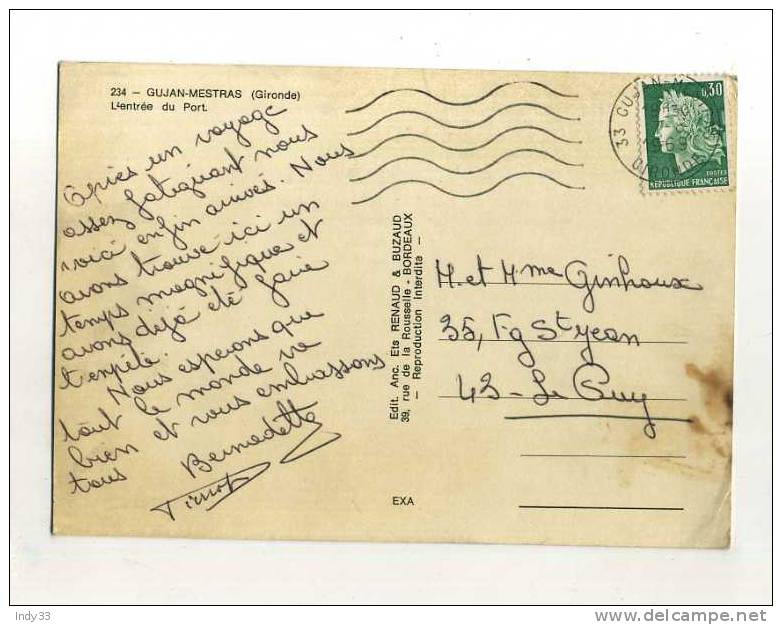 234 — GUJAN-MESTRAS (Gironde)
L'entrée du Port.
Après un voyage
assez fatiguant nous
voici enfin arrivés. Nous
avons trouvé ici un
temps magnifique et
avons déjà été faire
trempète.
Nous espérons que
tout le monde va
bien et vous embrassons
tous Bernadette
Edit. Anc. Ets RENAUD & BUZAUD
39, rue de la Rousselle - BORDEAUX
— Reproduction Interdite —
EXA
33 GUJAN-M
1969
GIRONDE
0,30
POSTES
REPUBLIQUE FRANÇAISE
M. et Mme Ginhoux
35, Fg St Jean
43 - Le Puy
Indy33
www.delcampe.net